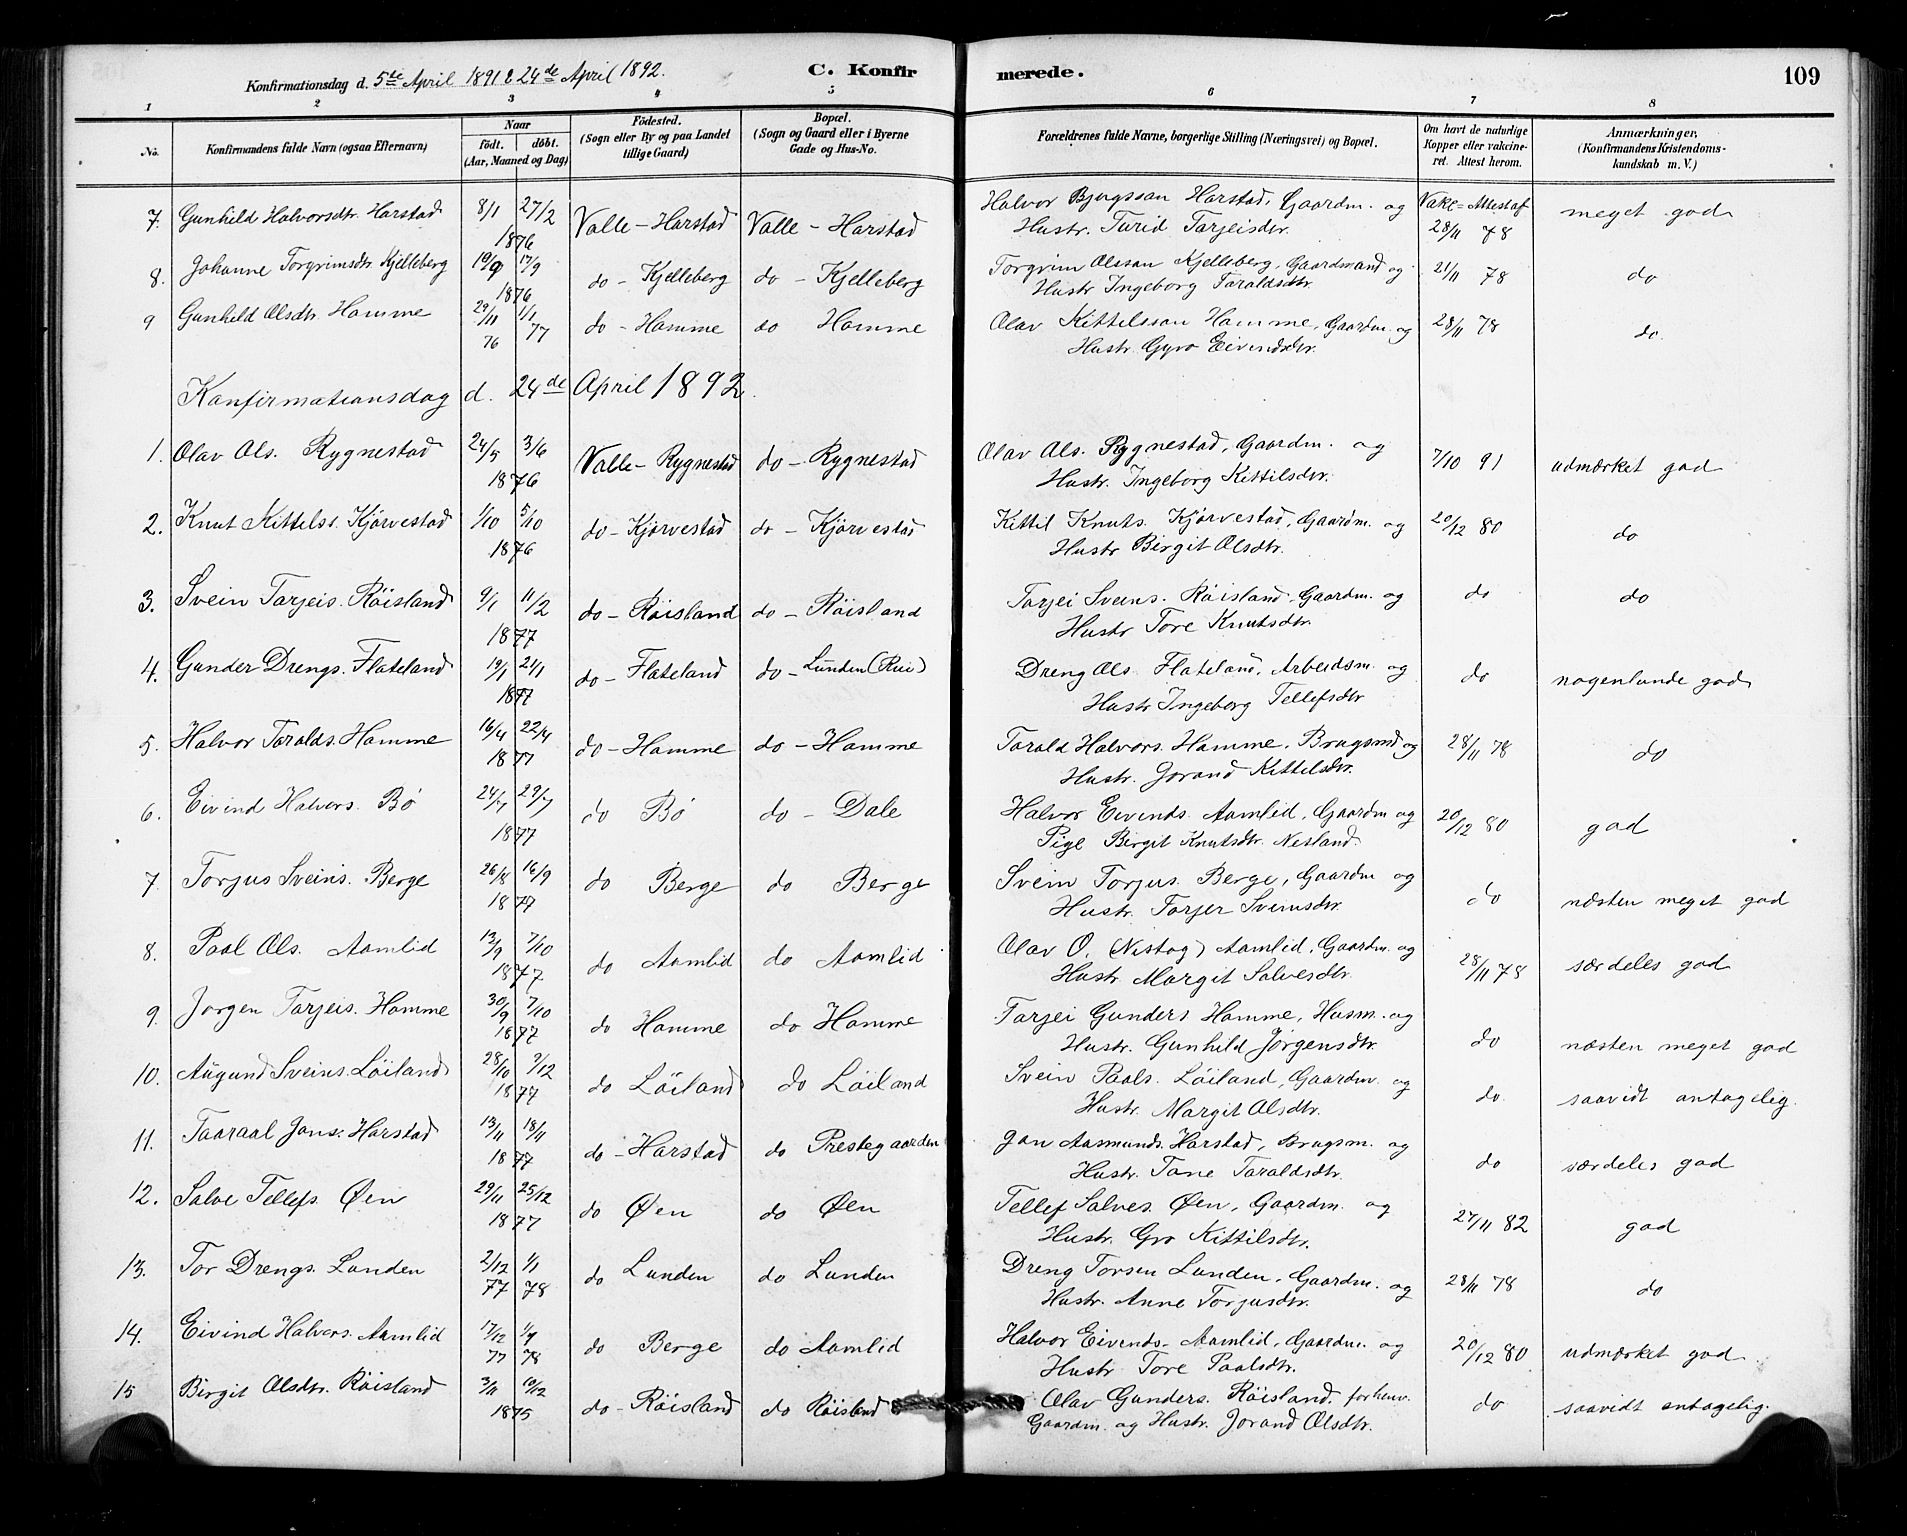 Konfirmationsdag d. 5te April 1891 & 24de April 1892.
C. Konfirmerede.
109
1 2 3 4 5 6 7 8
No.
Konfirmandens fulde Navn (ogsaa Efternavn)
Naar
født. døbt.
(Aar, Maaned og Dag)
Födested.
(Sogn eller By og paa Landet
tillige Gaard)
Bopæl.
(Sogn og Gaard eller i Byerne
Gade og Hus-No.
Forældrenes fulde Navne, borgerlige Stilling (Næringsvei) og Bopæl.
Om havt de naturlige
Kopper eller vakcine-
ret. Attest herom.
Anmærkninger,
(Konfirmandens Kristendoms-
kundskab m. V.)
7. Gunhild Halvorsdtr. Harstad 8/1 27/2 1876 Valle - Harstad Valle - Harstad Halvor Bjugsson Harstad, Gaardm. og Vakc = Attest af meget god
Hustr. Turid Tarjeisdtr. 28/11 78
8. Johanne Torgrimsdtr. Kjelleberg 10/9 17/9 1876 do - Kjelleberg do - Kjelleberg Torgrim Olsson Kjelleberg, Gaardmand og 21/11 78 do
Hustr. Ingeborg Taraldsdtr.
9 Gunhild Olsdtr. Homme 29/11 76 1/1 77 do - Homme do Homme Olav Kittilsson Homme, Gaardm. og 28/11 78 do.
Hustr. Gyro Eivindsdtr.
Konfirmationsdag d. 24de April 1892.
1. Olav Ols. Rygnestad 24/5 3/6 1876 Valle - Rygnestad do - Rygnestad Olav Ols. Rygnestad, Gaardm. og 7/10 91 udmærket god
Hustr. Ingeborg Kittilsdtr.
2. Knut Kittilss. Kjørvestad 1/10 5/10 1876 do - Kjørvestad do - Kjørvestad Kittil Knuts. Kjørvestad, Gaardm. og 20/12 80 do
Hustr Birgit Olsdtr.
3. Svein Tarjeis. Røisland 9/1 11/2 1877 do - Røisland do - Røisland Tarjei Sveins. Røisland, Gaardm. og do do
Hustr Tore Knutsdtr.
4. Gunder Drengs. Flateland 19/1 21/1 1877 do - Flateland do - Lunden (Rui) Dreng Ols. Flateland, Arbeidsm. og do nogenlunde god
Hustr Ingeborg Tellefsdtr
5. Halvor Taralds. Homme 16/4 22/4 1877 do - Homme do - Homme Tarald Halvors. Homme, Brugsmd og 28/11 78 do
Hustr. Jorand Kittilsdtr.
6. Eivind Halvors. Bø 24/7 29/7 1877 do Bø do - Dale Halvor Eivinds. Aamlid, Gaardm og 20/12 80 god
Pige Birgit Knutsdtr. Nesland.
7. Torjus Sveins. Berge 26/8 16/9 1877 do Berge do Berge Svein Torjus. Berge, Gaardm og do næsten meget god
Hustr. Torjer Sveinsdtr.
8. Paal Ols. Aamlid 13/9 7/10 1877 do Aamlid do Aamlid Olav O. (Nistog) Aamlid, Gaardm. og 28/11 78 særdeles god
Hustr. Margit Salvesdtr.
9. Jørgen Tarjeis. Homme 30/9 7/10 1877 do Homme do Homme Tarjei Gunders Homme, Husm. og do næsten meget god
Hustr. Gunhild Jørgensdtr.
10. Augund Sveins. Løiland 28/10 2/12 1877 do Løiland do Løiland Svein Paals. Løiland, Gaardm. og do. saavidt antagelig.
Hustr. Margit Olsdtr.
11. Taaraal Jons. Harstad 13/11 18/11 1877 do - Harstad do Prestegaarden Jon Aasmunds. Harstad, Brugsm. og do særdeles god
Hustr. Tone Taraldsdtr.
12. Salve Tellefs. Øen 29/11 25/12 1877 do Øen do Øen Tellef Salves. Øen, Gaardm. og 27/11 82 god
Hustr. Gro Kittilsdtr.
13. Tor Drengs. Lunden 2/12 77 1/1 78 do Lunden do Lunden Dreng Torsen Lunden, Gaardm. og 28/11 78 do
Hustr. Anne Torjusdtr.
14. Eivind Halvors. Aamlid 17/12 77 78 do Berge do Aamlid Halvor Eivinds. Aamlid, Gaardm. og 20/12 80 udmærket god
Hustr Tore Paalsdtr.
15 Birgit Olsdtr. Røisland 3/11 10/12 1875 do - Røisland do Røisland Olav Gunders. Røisland, forhenv. do saavidt antagelig.
Gaardm. og Hustr. Jorand Olsdtr.